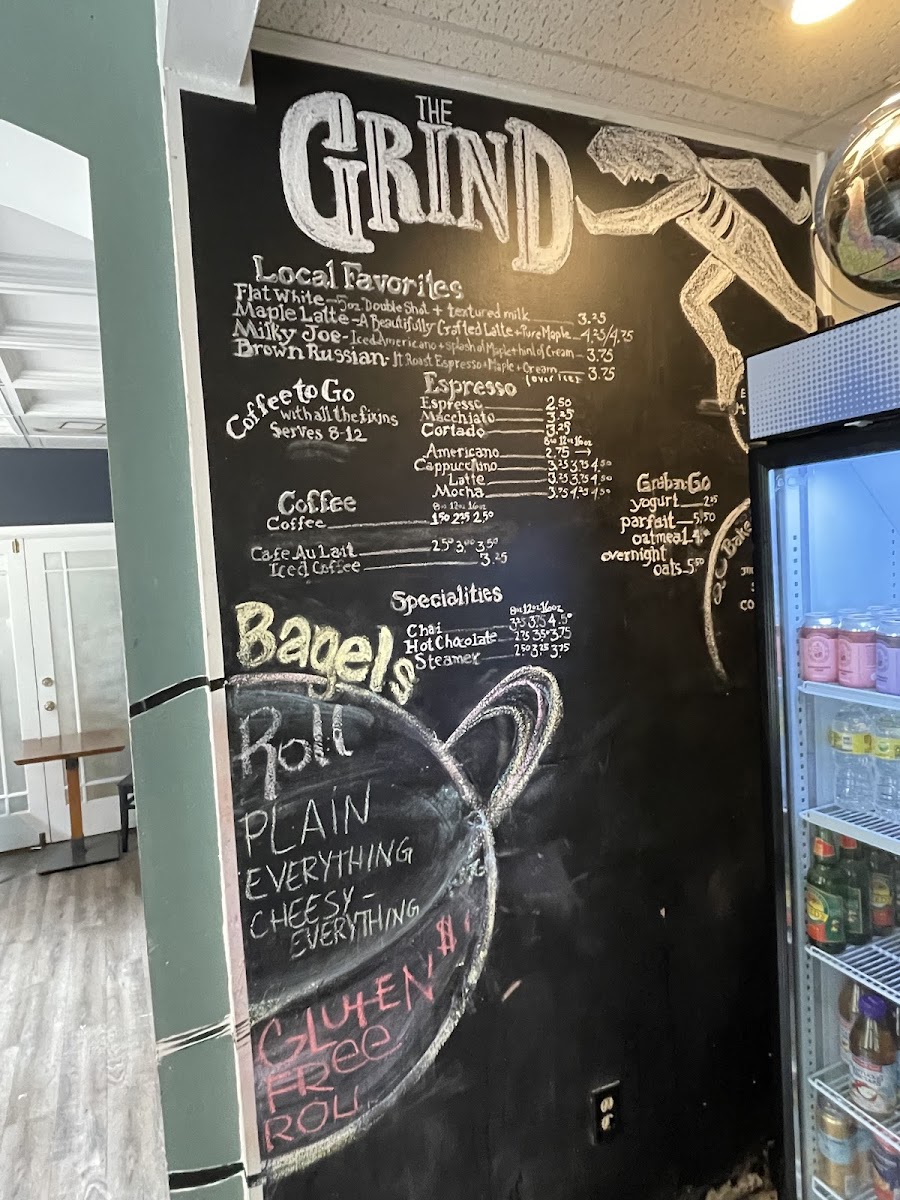 THE
GRIND
Local Favorites
Flat White - 5oz Double Shot + textured milk 3.25
Maple Latte - A Beautifully Crafted Latte + Pure Maple - 4.25/4.75
Milky Joe - Iced Americano + Splash of Maple + hint of Cream - 3.75
Brown Russian - It Roast Espresso + Maple + Cream 3.75
(over Ice)
Coffee to Go
with all the fixins
Serves 8-12
Espresso
Espresso 2.50
Macchiato 3.25
Cortado 3.25
8oz 12oz 16oz
Americano 2.75 →
Cappuccino 3.25 3.75 4.50
Latte 3.25 3.75 4.50
Mocha 3.75 4.25 4.50
Coffee
8oz 12oz 16oz
Coffee 1.50 2.25 2.50
Cafe Au Lait 2.50 3.00 3.50
Iced Coffee 3.25
Grab n Go
yogurt
parfait 5.50
oatmeal
overnight
oats 5.50
Specialities
8oz 12oz 16oz
Chai 3.25 3.75 4.50
Hot Chocolate 2.75 3.50 3.75
Steamer 2.50 3.25 3.75
Bagels
Roll
PLAIN
EVERYTHING
CHEESY -
EVERYTHING
GLUTEN $1
FREE
ROLL